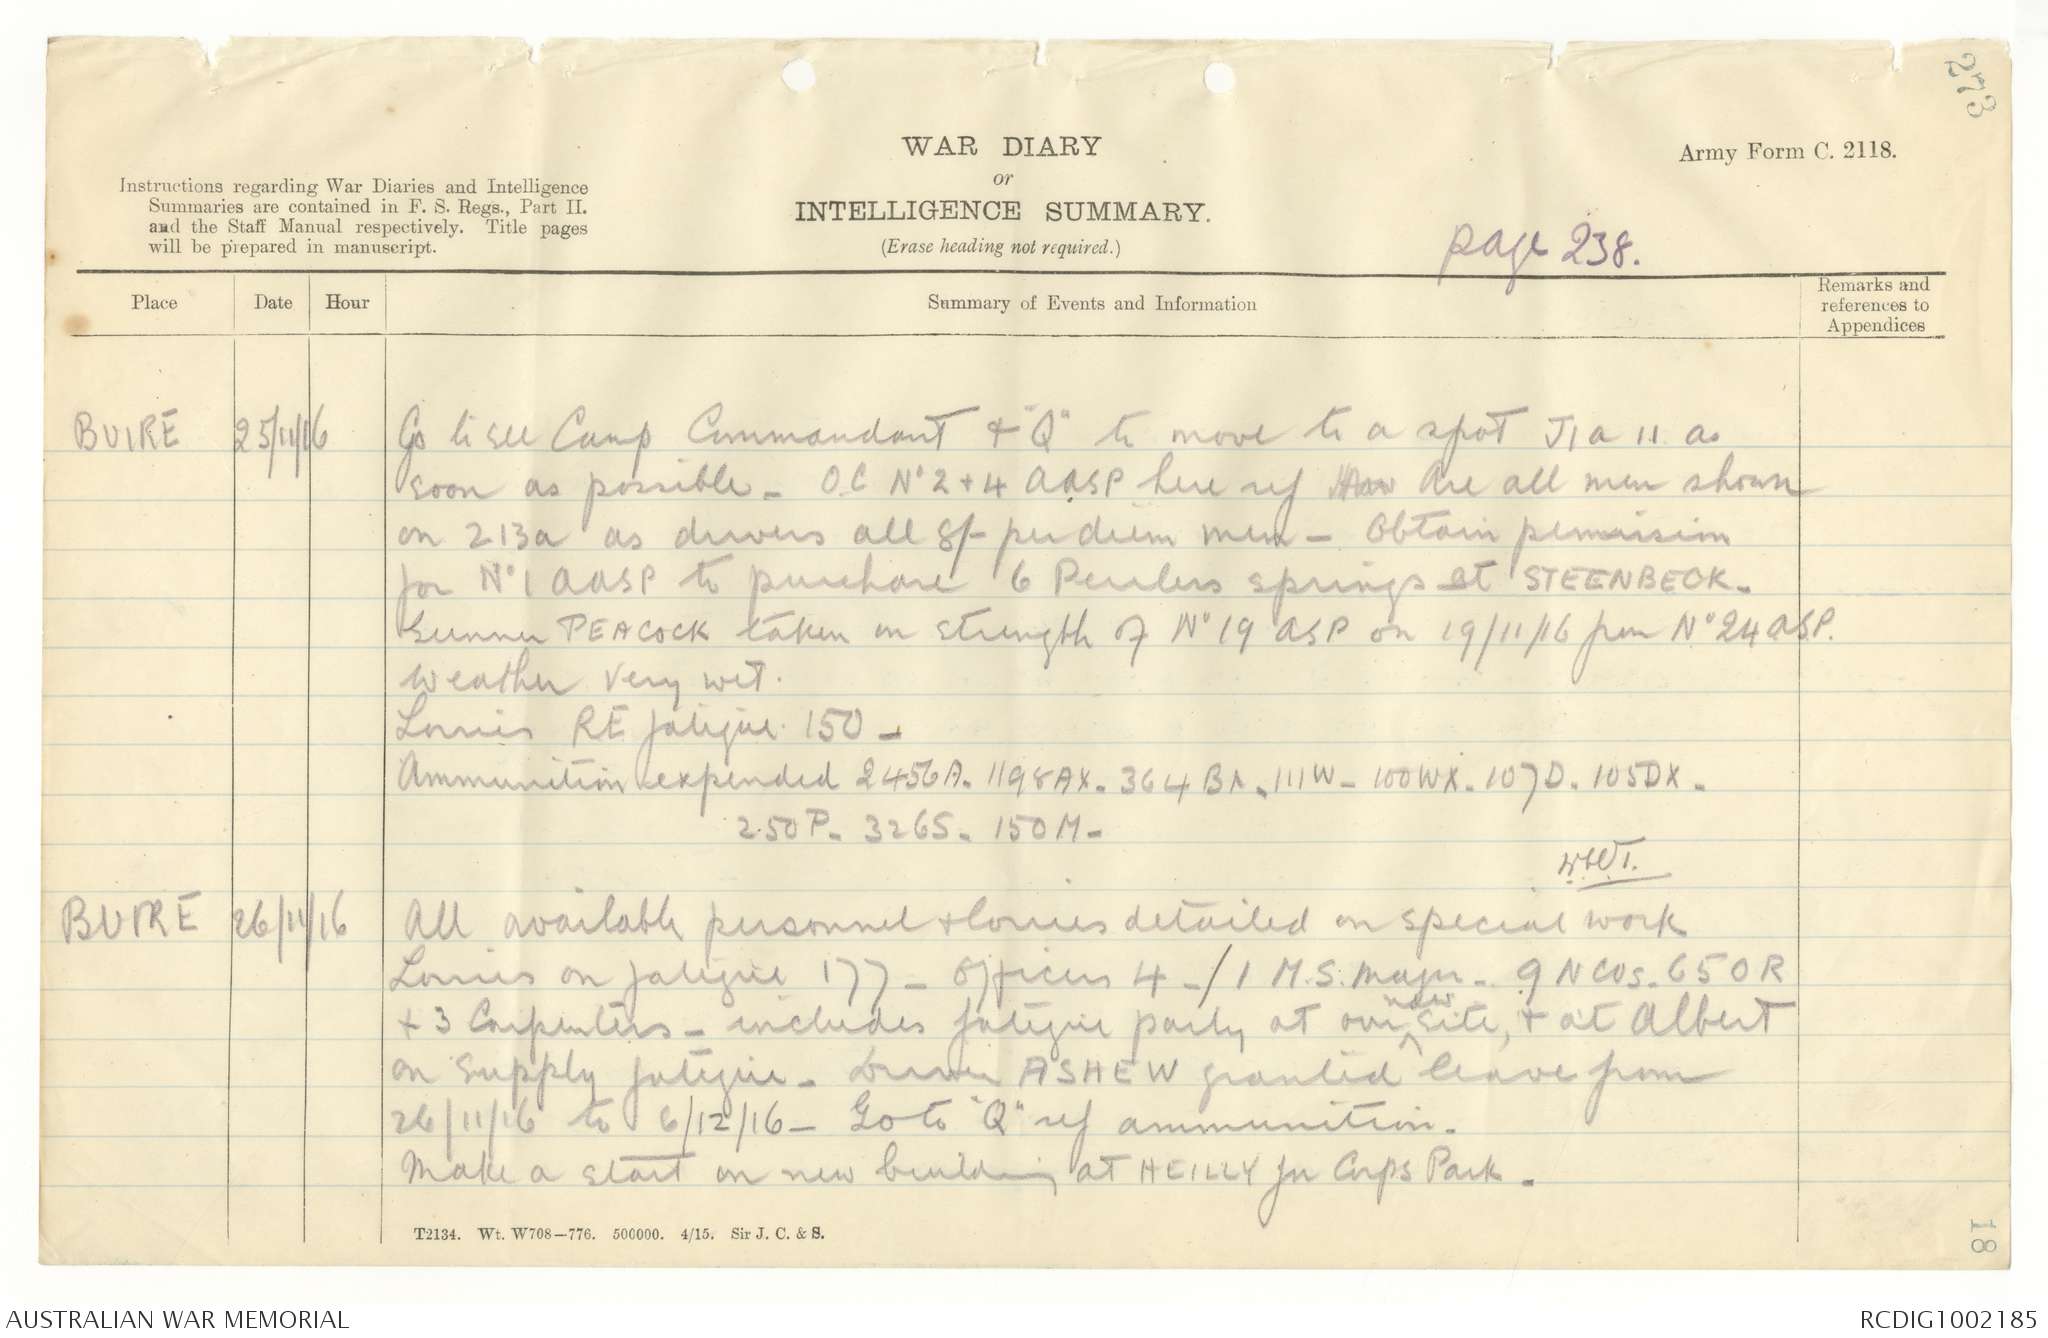 273
WAR DIARY
or
INTELLIGENCE SUMMARY.
(Erase heading not required.)
Army Form C. 2118.
Instructions regarding War Diaries and Intelligence
Summaries are contained in F. S. Regs., Part II.
and the Staff Manual respectively. Title pages
will be prepared in manuscript.
page 238.
Place Date Hour Summary of Events and Information Remarks and
references to
Appendices
BUIRE 25/11/16 Go to see Camp Commandant & "Q" to move to a spot J1a 11 as
soon as possible - O.C No 2 + 4 AASP here ref Are all men shown
on 213a as drivers all 8/- per diem men - Obtain permission
for No 1 AASP to purchase 6 Peerless springs at STEENBECK.
Gunner PEACOCK taken on strength of No 19 ASP on 19/11/16 from No 24 ASP.
Weather very wet.
Lorries RE fatigue 150 -
Ammunition expended 2456A. 1198AX. 364 BX. 111W - 100WX. 107D. 105DX.
250P. 326S. 150M -
BUIRE 26/11/16 All available personnel & lorries detailed on special work
Lorries on fatigue 177 - Officers 4 - / 1 M.S. Major - 9 NCOs. 65 OR
+ 3 Carpenters - includes fatigue party at our new site, & at Albert
on supply fatigue - Driver ASHEW granted leave from
26/11/16 to 6/12/16 - Go to "Q" ref ammunition.
Make a start on new building at HEILLY for Corps Park.
T2134. Wt. W708-776. 500000. 4/15. Sir J. C. & S.
18
AUSTRALIAN WAR MEMORIAL
RCDIG1002185